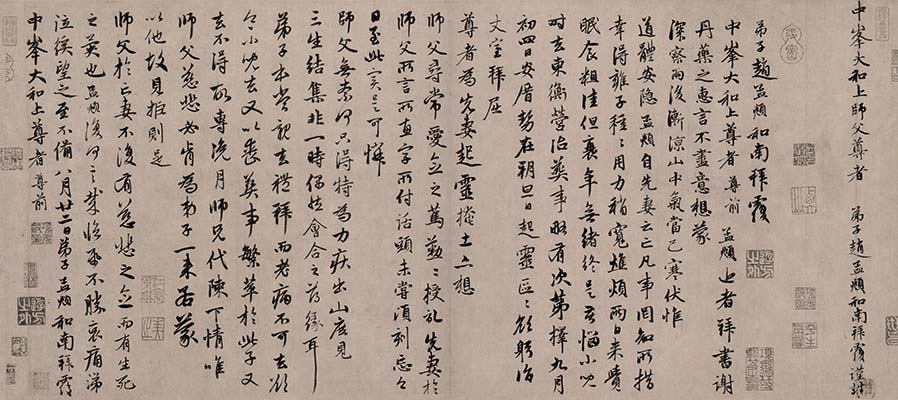 中峯大和上師父尊者　弟子趙孟頫和南拜覆謹封
弟子趙孟頫和南拜覆
中峯大和上尊者尊前孟頫近者拜書謝
丹藥之惠言不盡意想蒙
深察雨後漸涼山中氣當已寒伏惟
道體安隱孟頫自先妻云亡凡事罔知所措
幸得雍子種種用力稍寬雄煩兩日來賷
眠食粗佳但衰年無緒終是苦惱小兒
時去東衡營治葬事略有次第擇九月
初四日安厝勢在朔旦日起靈區區欲躬詣
丈室拜屈
尊者為先妻起靈掩土亡想
師父尋常愛念之篤懃懃授記先妻於
師父所言所直字所付話頭未嘗頃刻忘
日至此實是可憐
師父無奈何只得特為力疾出山庶見
三生結集非一時偶然會合之薄緣耳
弟子本當親去禮拜而老病不可去欲
令小兒去又以喪葬事繁萃於此子又
去不得故專浼月師兄代陳下情唯
師父慈悲必肯為弟子一來若蒙
以他故見拒則是
師父於亡妻不復有慈悲之念而有生死
之異也孟頫復何言哉臨紙不勝哀痛涕
泣俟望之至不備八月廿二日弟子孟頫和南拜覆
中峯大和上尊者尊前